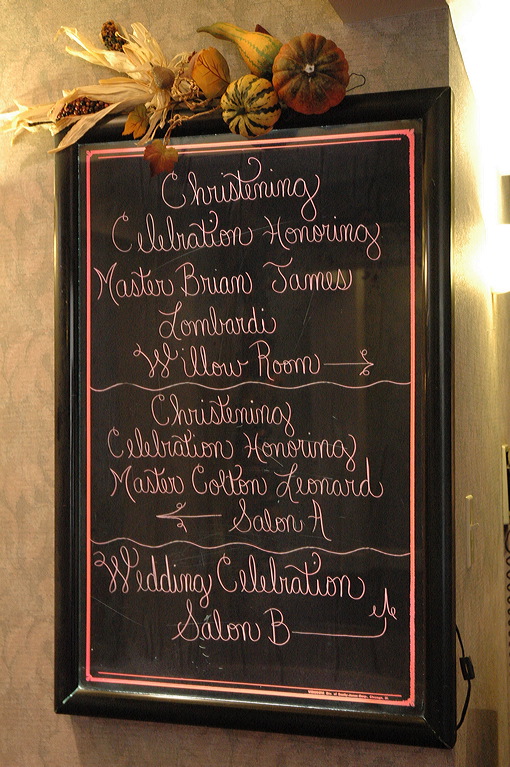 Christening
Celebration Honoring
Master Brian James
Lombardi
Willow Room
Christening
Celebration Honoring
Master Colton Leonard
Salon A
Wedding Celebration
Salon B